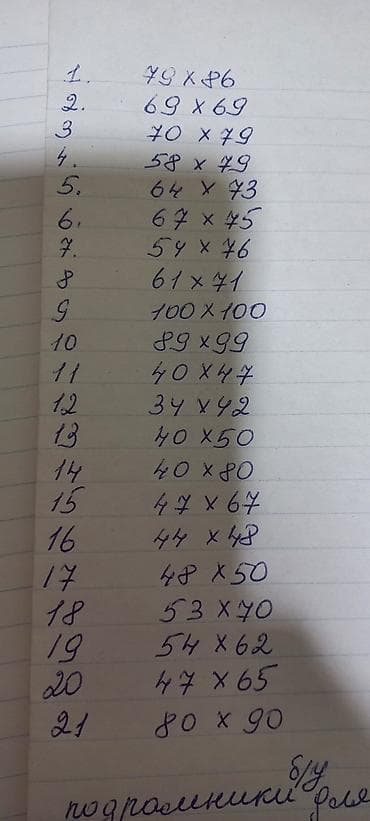 1. 79 x 86
2. 69 x 69
3 70 x 79
4. 58 x 79
5. 64 x 73
6. 67 x 75
7. 54 x 76
8 61 x 71
9 100 x 100
10 89 x 99
11 40 x 47
12 34 x 42
13 40 x 50
14 40 x 80
15 47 x 67
16 44 x 48
17 48 x 50
18 53 x 70
19 54 x 62
20 47 x 65
21 80 x 90
б/у
подрамники для